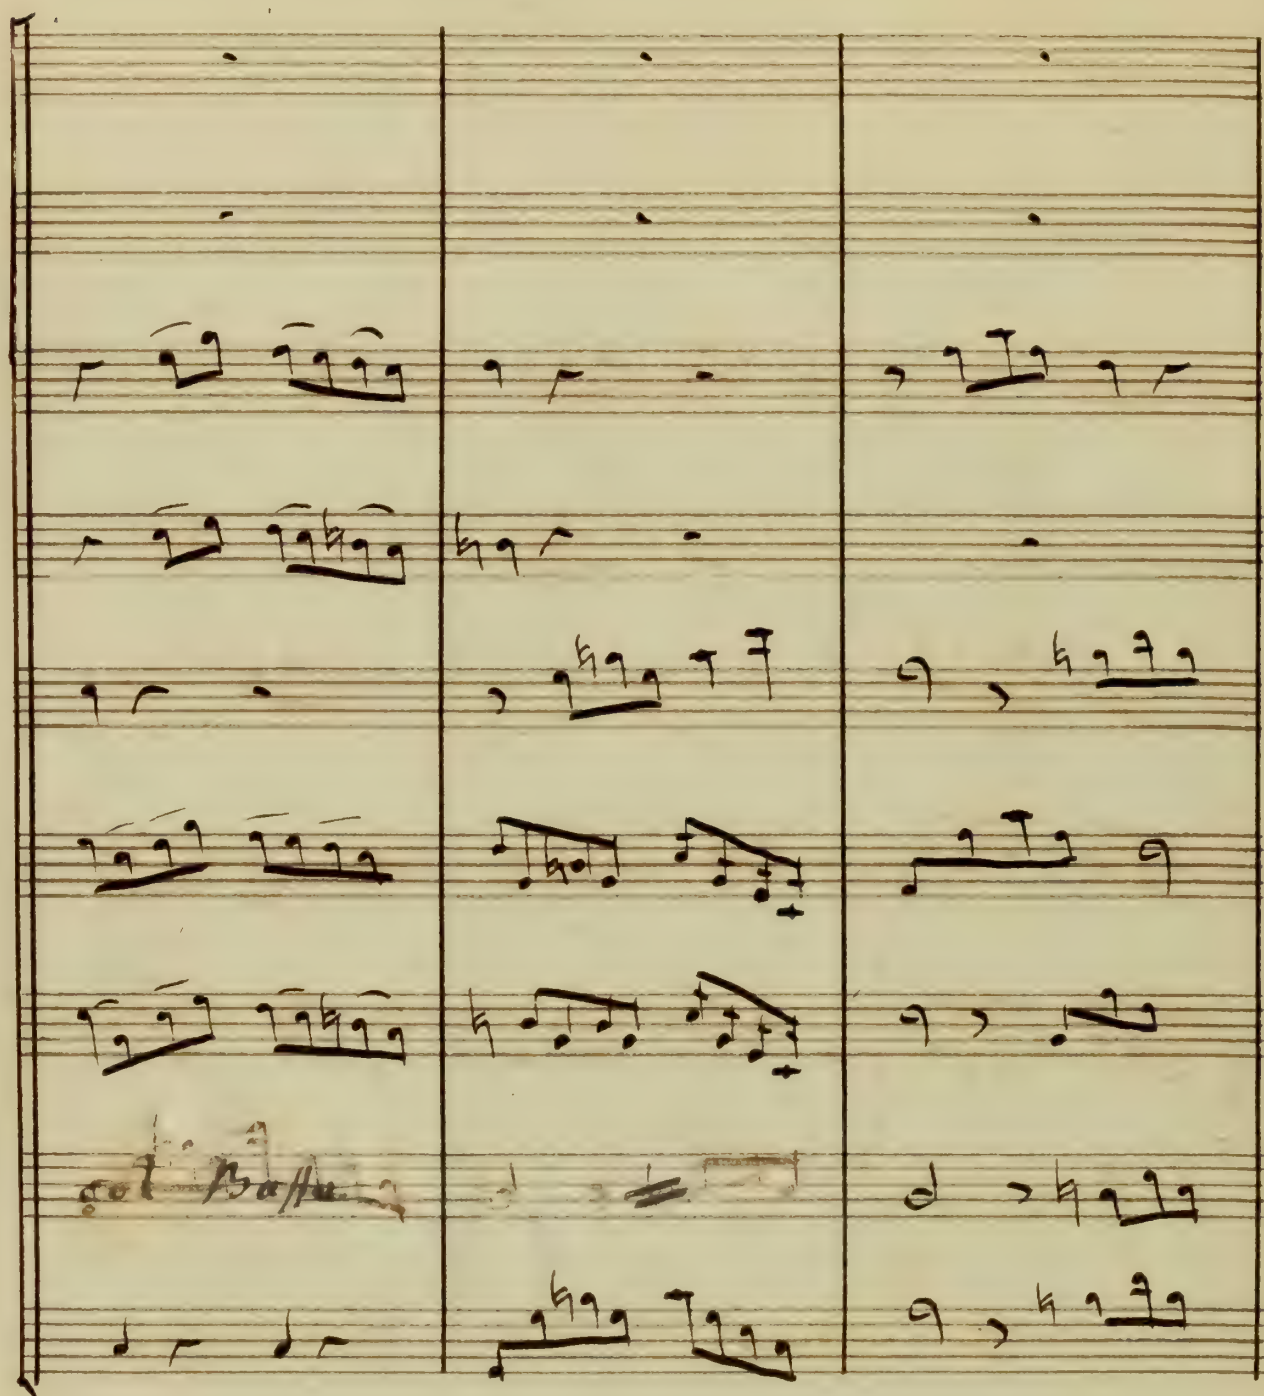 col Basso